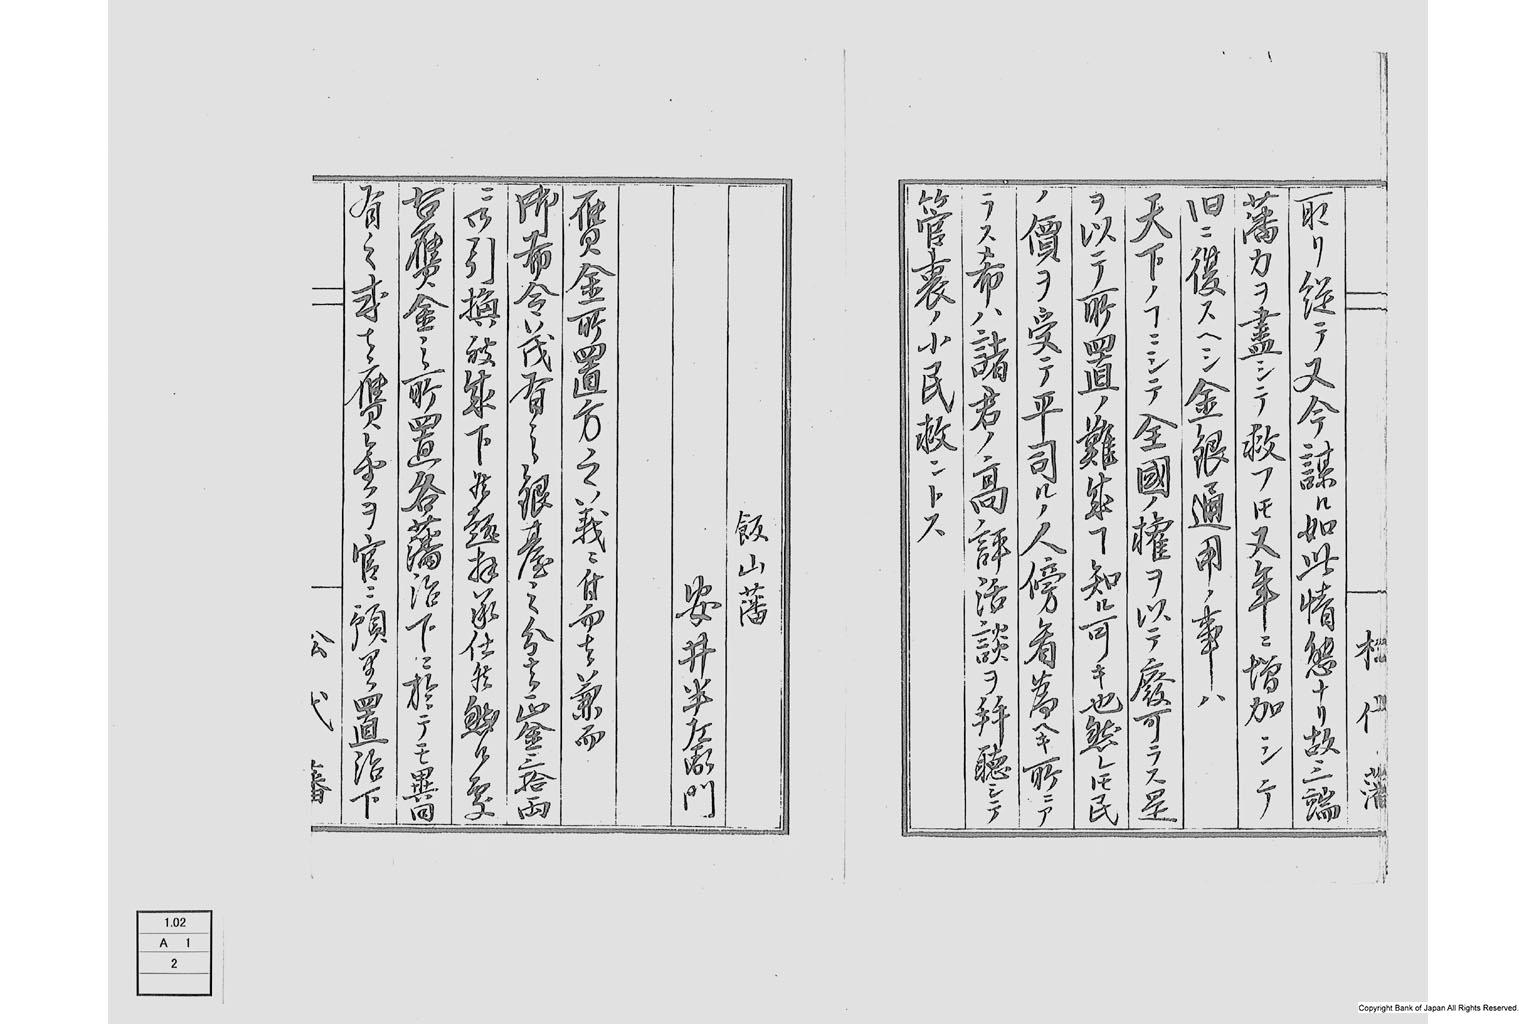 取リ從テ又今謀ル如此情態ナリ故ニ三端
藩力ヲ盡シテ救フ𪜈又年ニ増加シテ
旧ニ復スヘシ金銀通用ノ事ハ
天下ノヿニシテ全國ノ權ヲ以テ廢可ラス是
ヲ以テ所置ノ難来ヿ知ル可キ也然レ𪜈民
ノ價ヲ受テ平司ルノ人傍看為ヘキ所ニア
ラス希ハ諸君ノ高評活談ヲ拜聴シテ
管裏ノ小民救ントス
飯山藩
安井半左衛門
贋金所置方之義ニ付而者兼而
御布令茂有之銀臺之分者正金三拾両
ニ御引換被成下候趣拝承仕候然ル処
右贋金之所置各藩治下ニ於テモ異同
有之或者贋金ヲ官ニ預リ置治下
公代
藩
1.02
A 1
2
Copyright Bank of Japan All Rights Reserved.